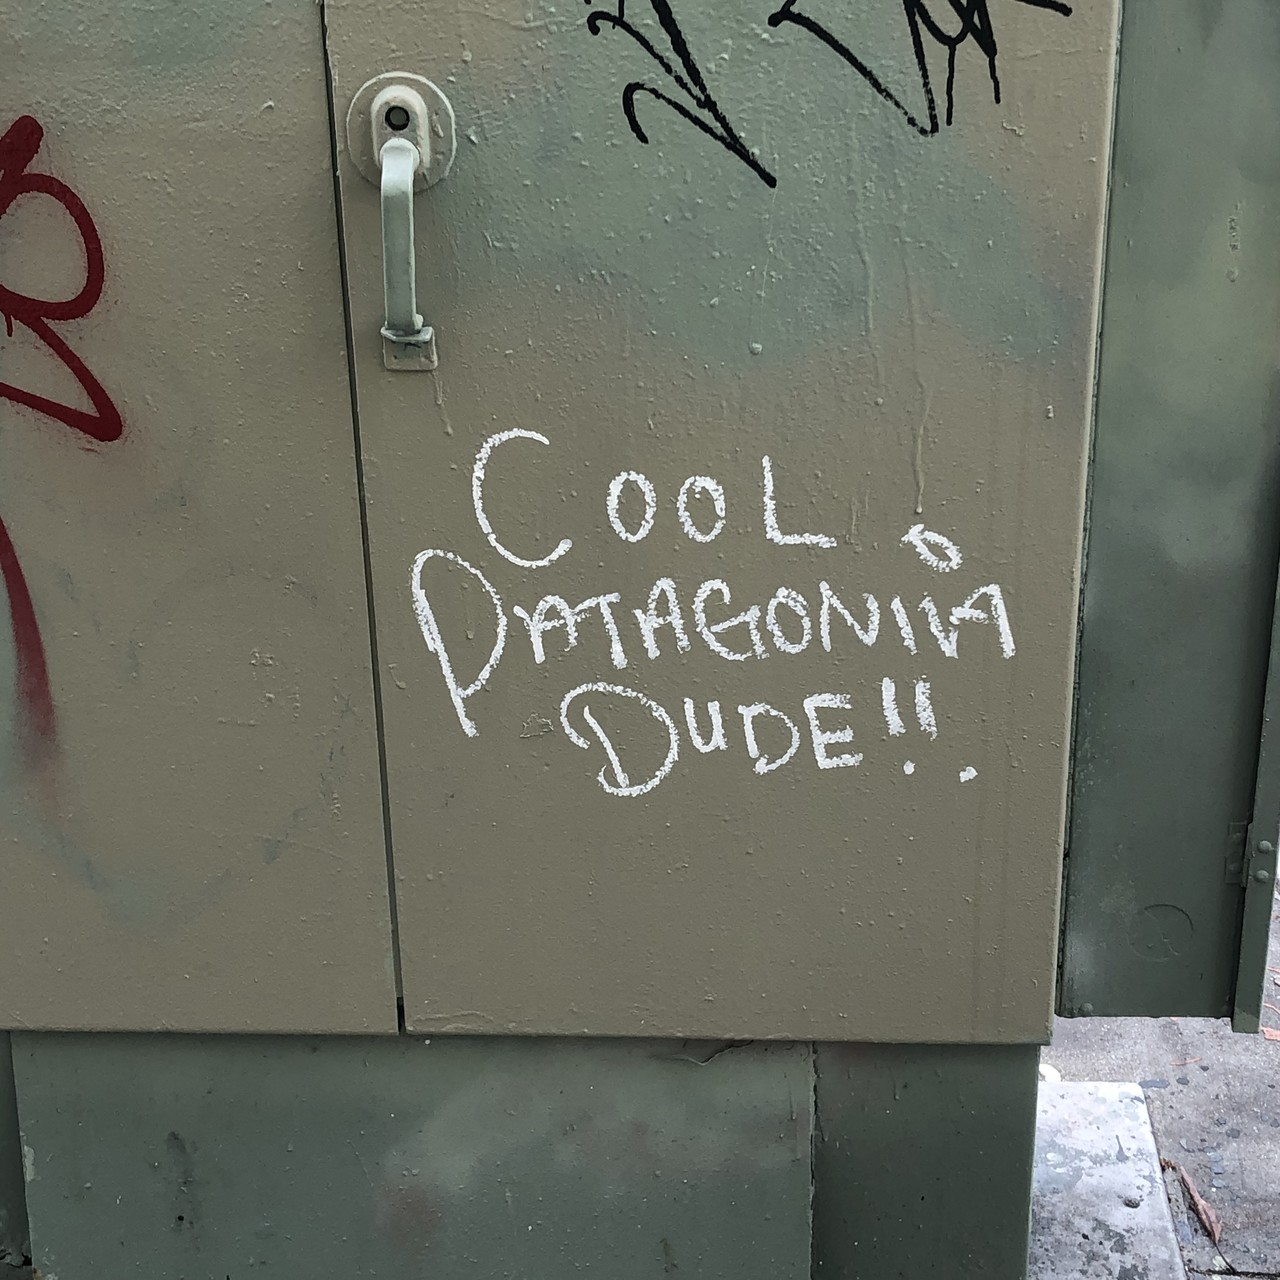 COOL
PATAGONIA
DUDE!!